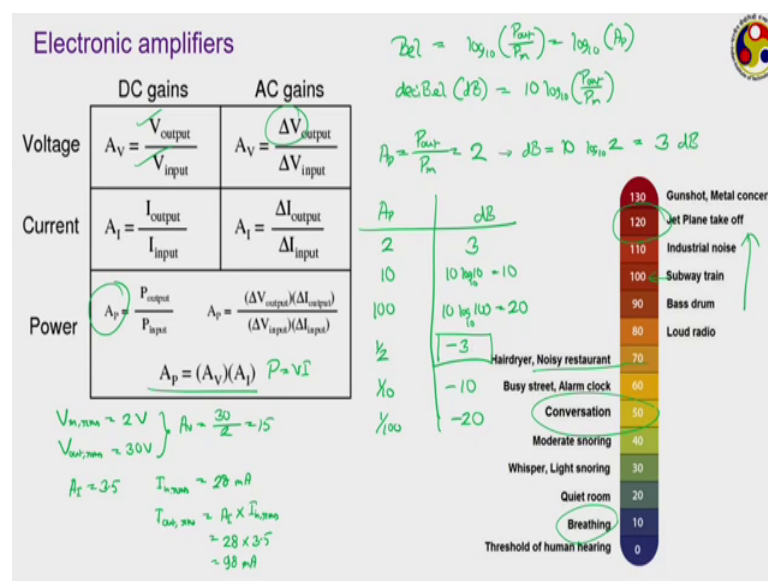 Electronic amplifiers
DC gains
AC gains
Voltage
A_V = V_output / V_input
A_V = ΔV_output / ΔV_input
Current
A_I = I_output / I_input
A_I = ΔI_output / ΔI_input
Power
A_P = P_output / P_input
A_P = (ΔV_output)(ΔI_output) / (ΔV_input)(ΔI_input)
A_P = (A_V)(A_I) P = VI
V_in,rms = 2V
V_out,rms = 30V
} A_V = 30/2 = 15
A_I = 3.5 I_in,rms = 28 mA
I_out,rms = A_I × I_in,rms
= 28 × 3.5
= 98 mA
Bel = log10 (P_out/P_in) = log10 (A_P)
deciBel (dB) = 10 log10 (P_out/P_in)
A_P = P_out/P_in = 2 → dB = 10 log10 2 = 3 dB
A_P dB
2 3
10 10 log10 10 = 10
100 10 log10 100 = 20
1/2 -3
1/10 -10
1/100 -20
130 Gunshot, Metal concer
120 Jet Plane take off
110 Industrial noise
100 Subway train
90 Bass drum
80 Loud radio
Hairdryer, Noisy restaurant 70
Busy street, Alarm clock 60
Conversation 50
Moderate snoring 40
Whisper, Light snoring 30
Quiet room 20
Breathing 10
Threshold of human hearing 0